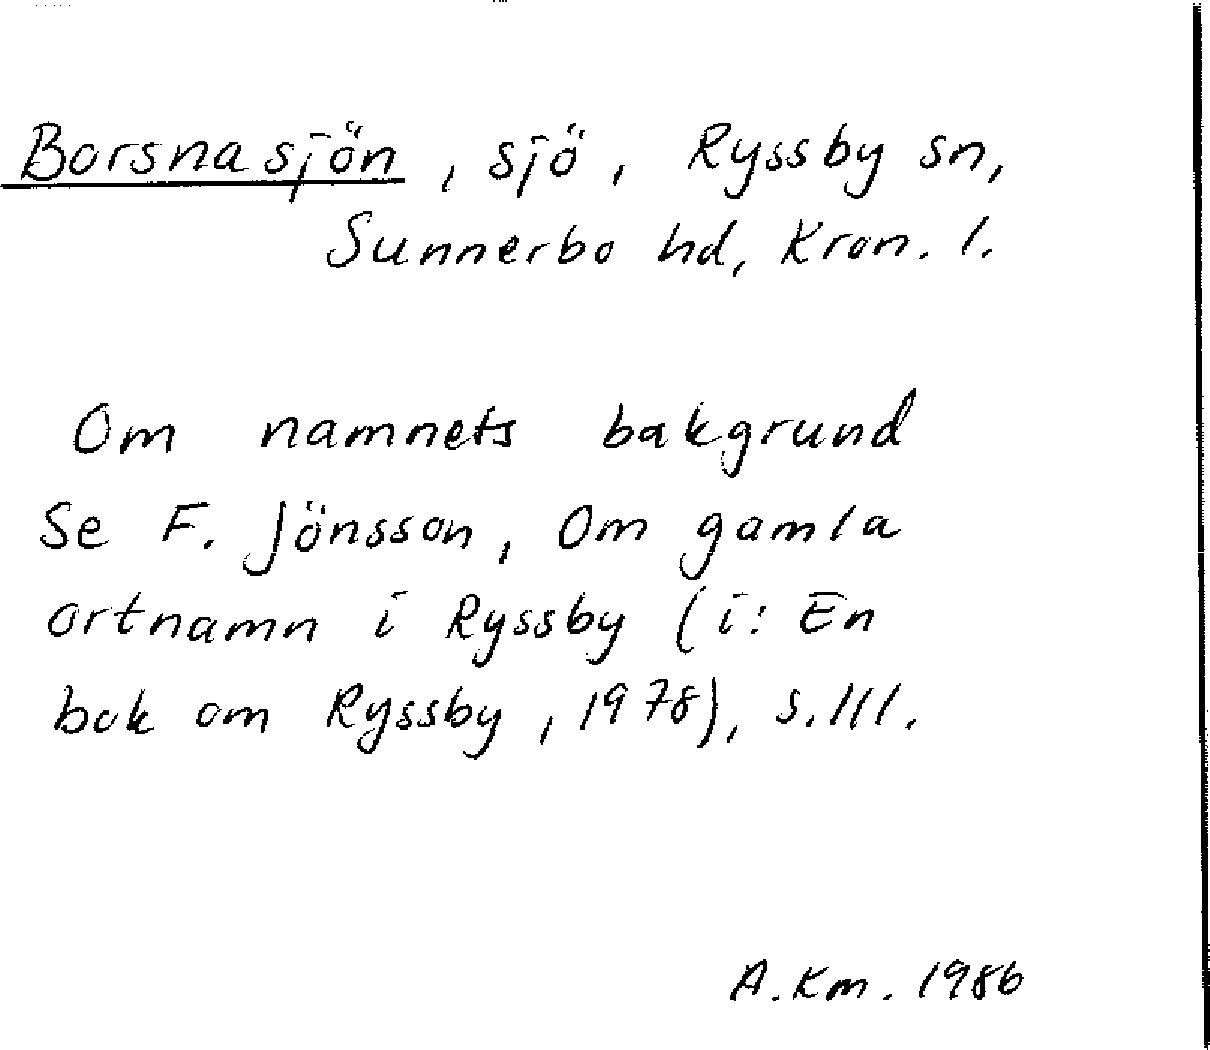 Borsnasjön, sjö, Ryssby sn,
Sunnerbo hd, Kron. l.
Om namnets bakgrund
Se F. Jönsson, Om gamla
ortnamn i Ryssby (i: En
bok om Ryssby, 1978), s. 111.
A. Km. 1986